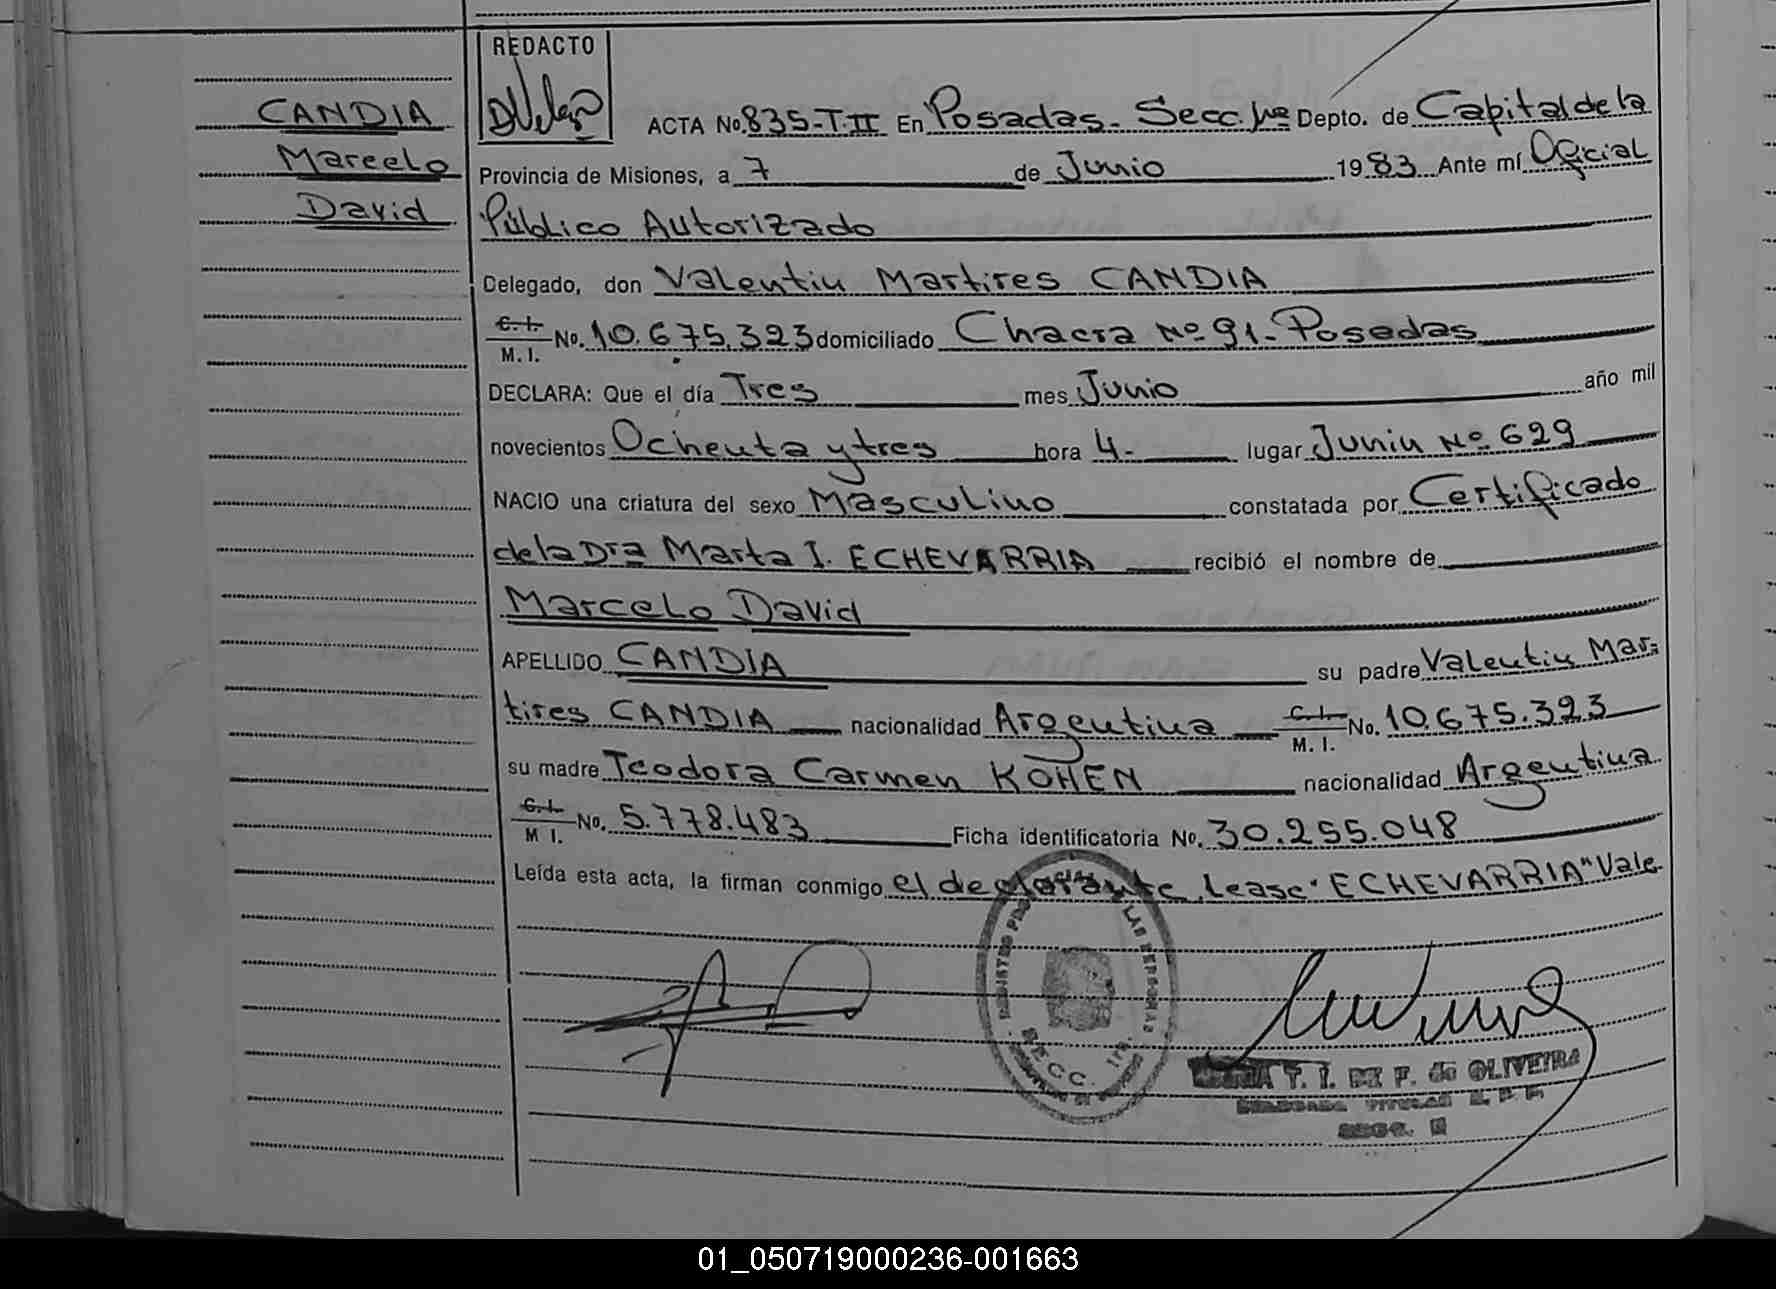 REDACTO
CANDIA
Marcelo
David
ACTA No. 835-T.II En Posadas. Secc. 1ra Depto. de Capital de la
Provincia de Misiones, a 7 de Junio 1983 Ante mí Oficial
Público Autorizado
Delegado, don Valentin Martires CANDIA
C.I. M.I. No. 10.675.323 domiciliado Chacra Nº 91- Posadas
DECLARA: Que el día Tres mes Junio año mil
novecientos Ochenta y tres hora 4.- lugar Junin Nº 629
NACIO una criatura del sexo Masculino constatada por Certificado
de la Dra Marta I. ECHEVARRIA recibió el nombre de
Marcelo David
APELLIDO CANDIA su padre Valentin Mar-
tires CANDIA nacionalidad Argentina C.I. M.I. No. 10.675.323
su madre Teodora Carmen KOHEN nacionalidad Argentina
C.I. M I. No. 5.778.483 Ficha identificatoria No. 30.255.048
Leída esta acta, la firman conmigo el declarante. Lease "ECHEVARRIA" Vale.
LAS PERSONAS
SECC. 1RA.
T. I. DE F. de OLIVEIRA
01_050719000236-001663